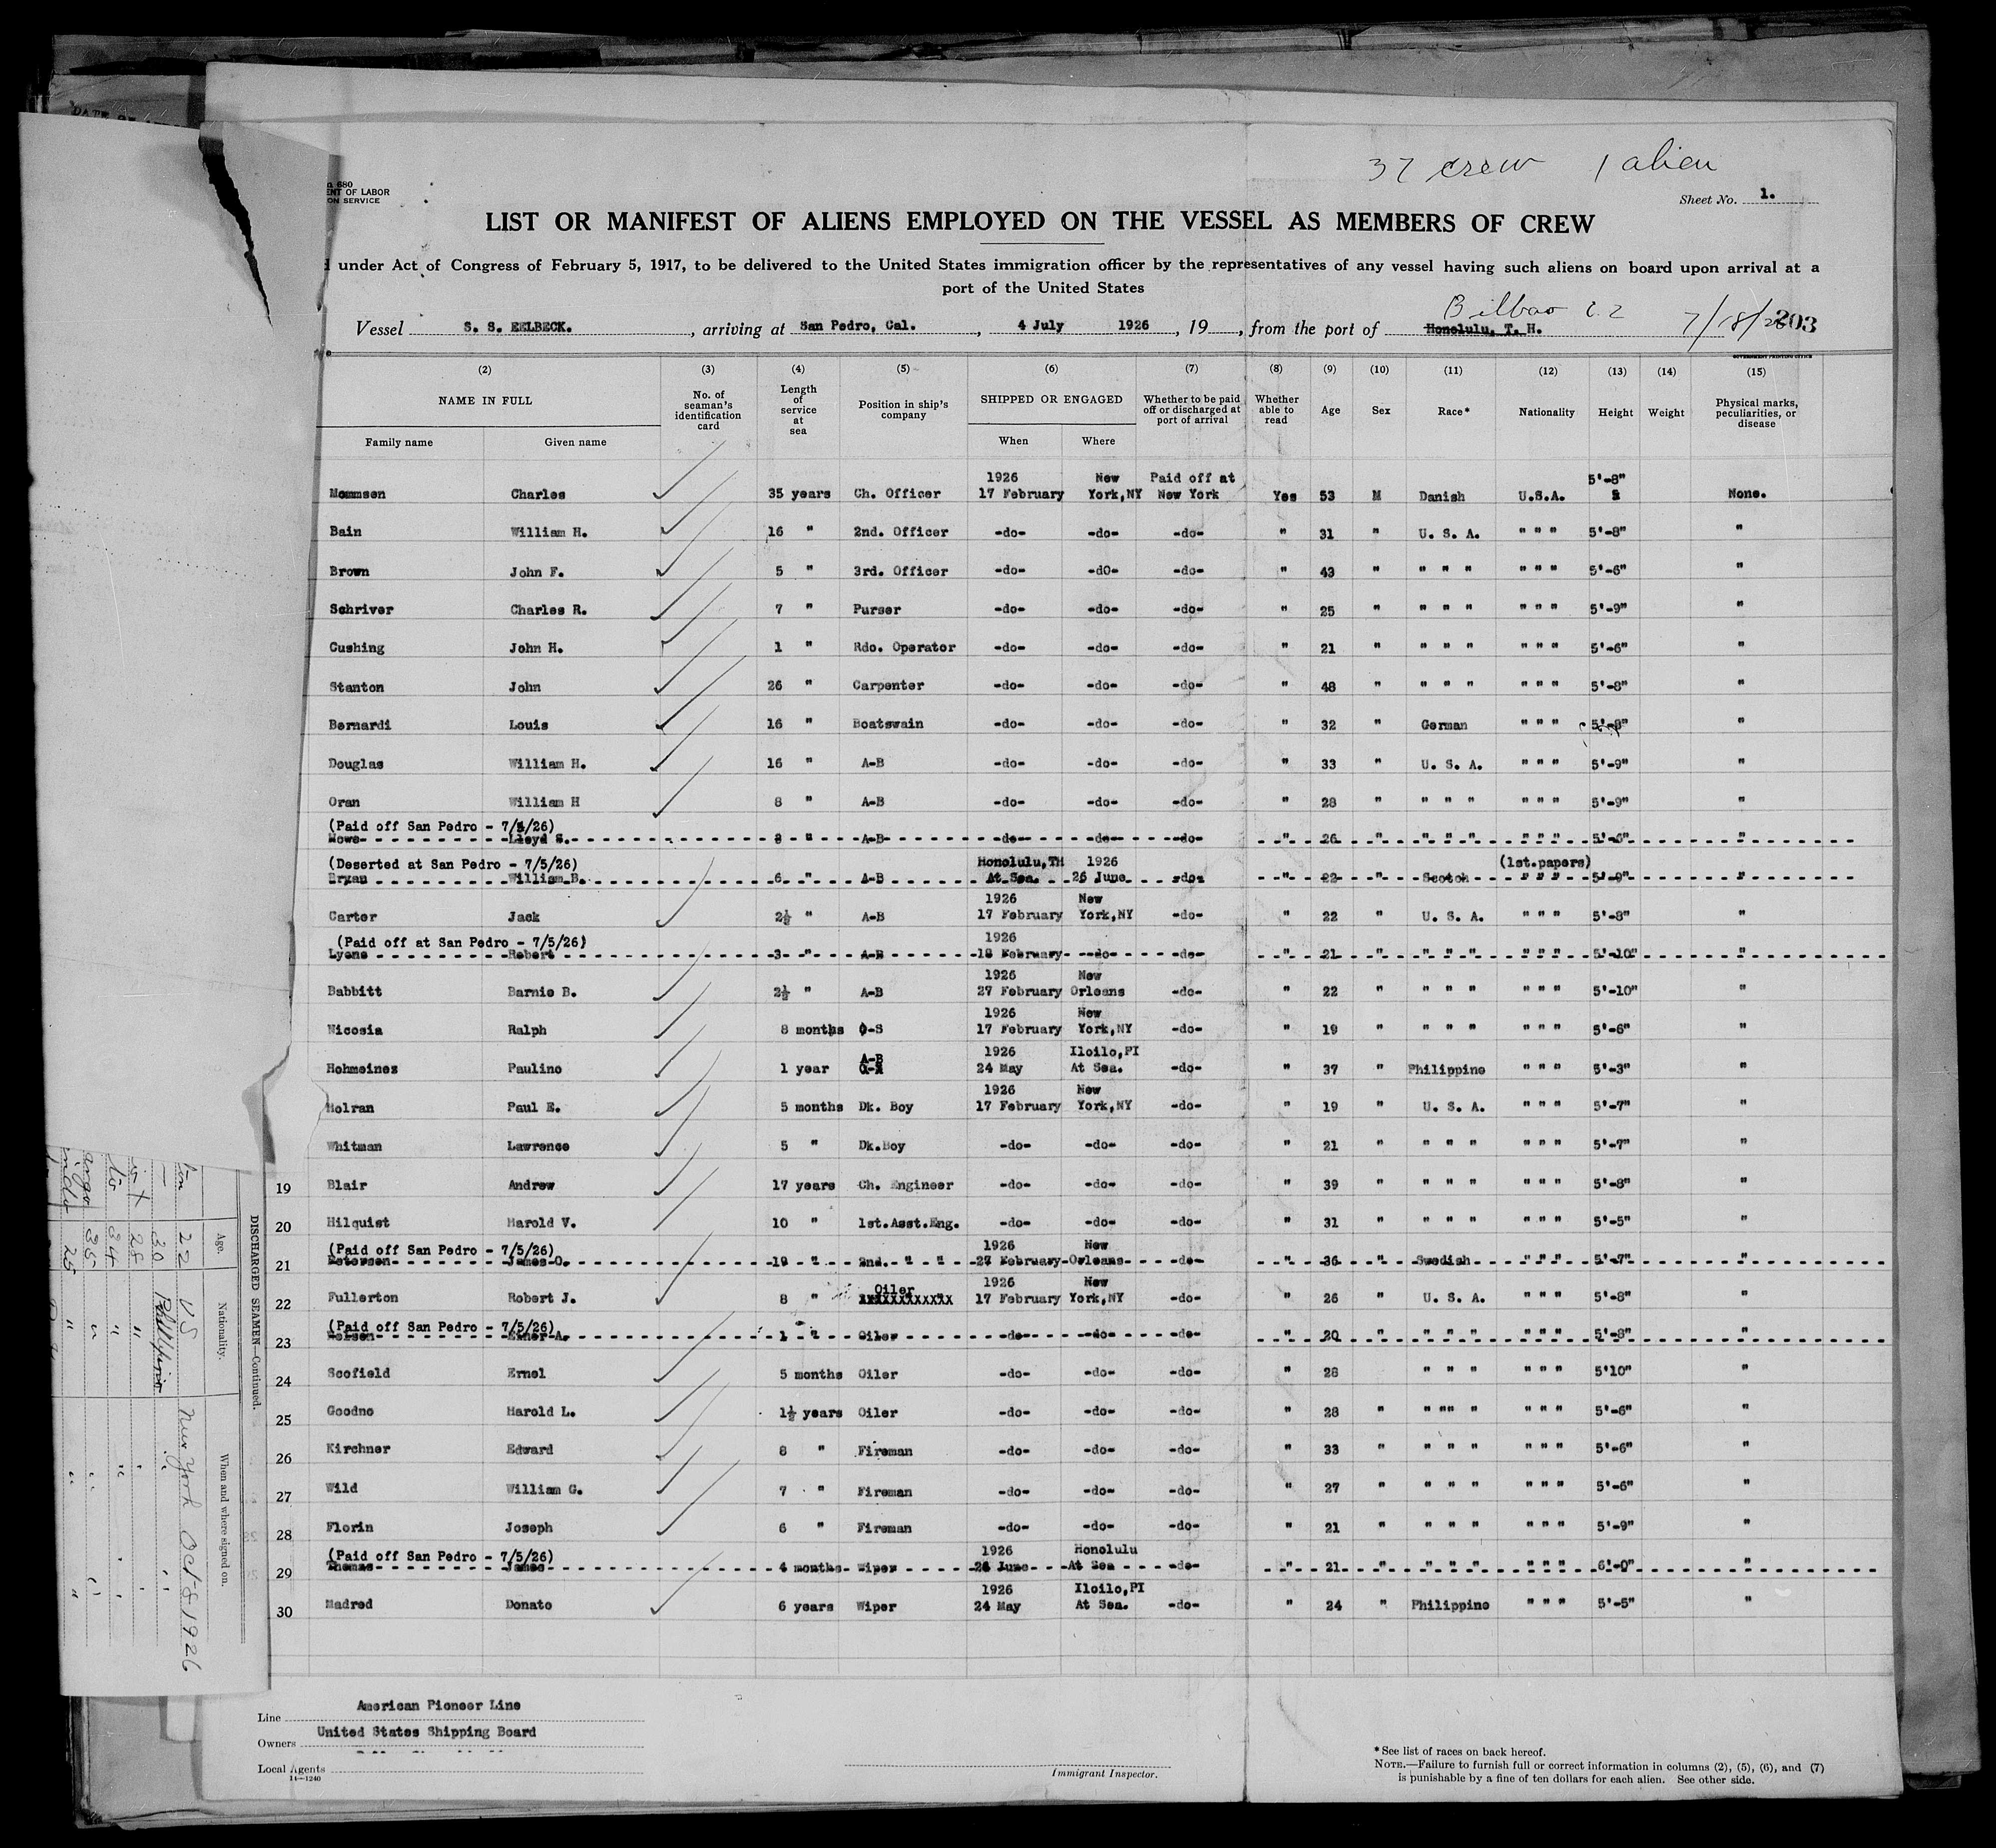 37 crew 1 alien
680
ENT OF LABOR
ON SERVICE
Sheet No. 1.
LIST OR MANIFEST OF ALIENS EMPLOYED ON THE VESSEL AS MEMBERS OF CREW
under Act of Congress of February 5, 1917, to be delivered to the United States immigration officer by the representatives of any vessel having such aliens on board upon arrival at a
port of the United States
Bilbao
Vessel S. S. EELBECK. , arriving at San Pedro, Cal. , 4 July 1926 , 19 , from the port of Honolulu, T. H. 7/18/26 203
GOVERNMENT PRINTING OFFICE
(2) (3) (4) (5) (6) (7) (8) (9) (10) (11) (12) (13) (14) (15)
NAME IN FULL No. of seaman's identification card Length of service at sea Position in ship's company SHIPPED OR ENGAGED Whether to be paid off or discharged at port of arrival Whether able to read Age Sex Race* Nationality Height Weight Physical marks, peculiarities, or disease
Family name Given name When Where
1926 New Paid off at 5'-8"
Mommsen Charles 35 years Ch. Officer 17 February York,NY New York Yes 53 M Danish U.S.A. None.
Bain William H. 16 " 2nd. Officer -do- -do- -do- " 31 " U. S. A. " " " 5'-8" "
Brown John F. 5 " 3rd. Officer -do- -dO- -do- " 43 " " " " " " " 5'-6" "
Schriver Charles R. 7 " Purser -do- -do- -do- " 25 " " " " " " " 5'-9" "
Cushing John H. 1 " Rdo. Operator -do- -do- -do- " 21 " " " " " " " 5'-6" "
Stanton John 26 " Carpenter -do- -do- -do- " 48 " " " " " " " 5'-8" "
Bernardi Louis 16 " Boatswain -do- -do- -do- " 32 " German " " " 5'-8" "
Douglas William H. 16 " A-B -do- -do- -do- " 33 " U. S. A. " " " 5'-9" "
Oran William H 8 " A-B -do- -do- -do- " 28 " " " " " " " 5'-9" "
(Paid off San Pedro - 7/5/26)
Mows Lloyd S. 8 " A-B -do- -do- -do- " 26 " " " " " " " 5'-6" "
(Deserted at San Pedro - 7/5/26) Honolulu,TH 1926 (1st.papers)
Bryan William B. 6 " A-B At Sea. 26 June -do- " 22 " Scotch " " " 5'-9" "
1926 New
Carter Jack 2½ " A-B 17 February York,NY -do- " 22 " U. S. A. " " " 5'-8" "
(Paid off at San Pedro - 7/5/26) 1926
Lyons Robert 3 " A-B 18 February -do- -do- " 21 " " " " " " " 5'-10" "
1926 New
Babbitt Barnie B. 2½ " A-B 27 February Orleans -do- " 22 " " " " " " " 5'-10" "
1926 New
Nicosia Ralph 8 months O-S 17 February York,NY -do- " 19 " " " " " " " 5'-6" "
A-B 1926 Iloilo,PI
Hohmeines Paulino 1 year 24 May At Sea. -do- " 37 " Philippine " " " 5'-3" "
1926 New
Molran Paul E. 5 months Dk. Boy 17 February York,NY -do- " 19 " U. S. A. " " " 5'-7" "
Whitman Lawrence 5 " Dk.Boy -do- -do- -do- " 21 " " " " " " " 5'-7" "
19 Blair Andrew 17 years Ch. Engineer -do- -do- -do- " 39 " " " " " " " 5'-8" "
20 Hilquist Harold V. 10 " 1st.Asst.Eng. -do- -do- -do- " 31 " " " " " " " 5'-5" "
(Paid off San Pedro - 7/5/26) 1926 New
21 Petersen James O. 19 " 2nd. " " 27 February Orleans -do- " 36 " Swedish " " " 5'-7" "
Oiler 1926 New
22 Fullerton Robert J. 8 " XXXXXXXXXXXX 17 February York,NY -do- " 26 " U. S. A. " " " 5'-8" "
(Paid off San Pedro - 7/5/26)
23 Nelson Elmer A. 1 " Oiler -do- -do- -do- " 20 " " " " " " " 5'-8" "
24 Scofield Ernel 5 months Oiler -do- -do- -do- " 28 " " " " " " " 5'10" "
25 Goodno Harold L. 1½ years Oiler -do- -do- -do- " 28 " " " " " " " 5'-6" "
26 Kirchner Edward 8 " Fireman -do- -do- -do- " 33 " " " " " " " 5'-6" "
27 Wild William G. 7 " Fireman -do- -do- -do- " 27 " " " " " " " 5'-6" "
28 Florin Joseph 6 " Fireman -do- -do- -do- " 21 " " " " " " " 5'-9" "
(Paid off San Pedro - 7/5/26) 1926 Honolulu
29 Thomas James 4 months Wiper 26 June At Sea -do- " 21 " " " " " " " 6'-0" "
1926 Iloilo,PI
30 Madred Donato 6 years Wiper 24 May At Sea. -do- " 24 " Philippine " " " 5'-5" "
Line American Pioneer Line
Owners United States Shipping Board
Local Agents
11-1240
Immigrant Inspector.
*See list of races on back hereof.
NOTE.—Failure to furnish full or correct information in columns (2), (5), (6), and (7)
is punishable by a fine of ten dollars for each alien. See other side.
DISCHARGED SEAMEN—Continued.
Age. Nationality. When and where signed on.
22 US New York Oct 8 1926
30 Phillipine
28 "
34 "
35 "
25 "